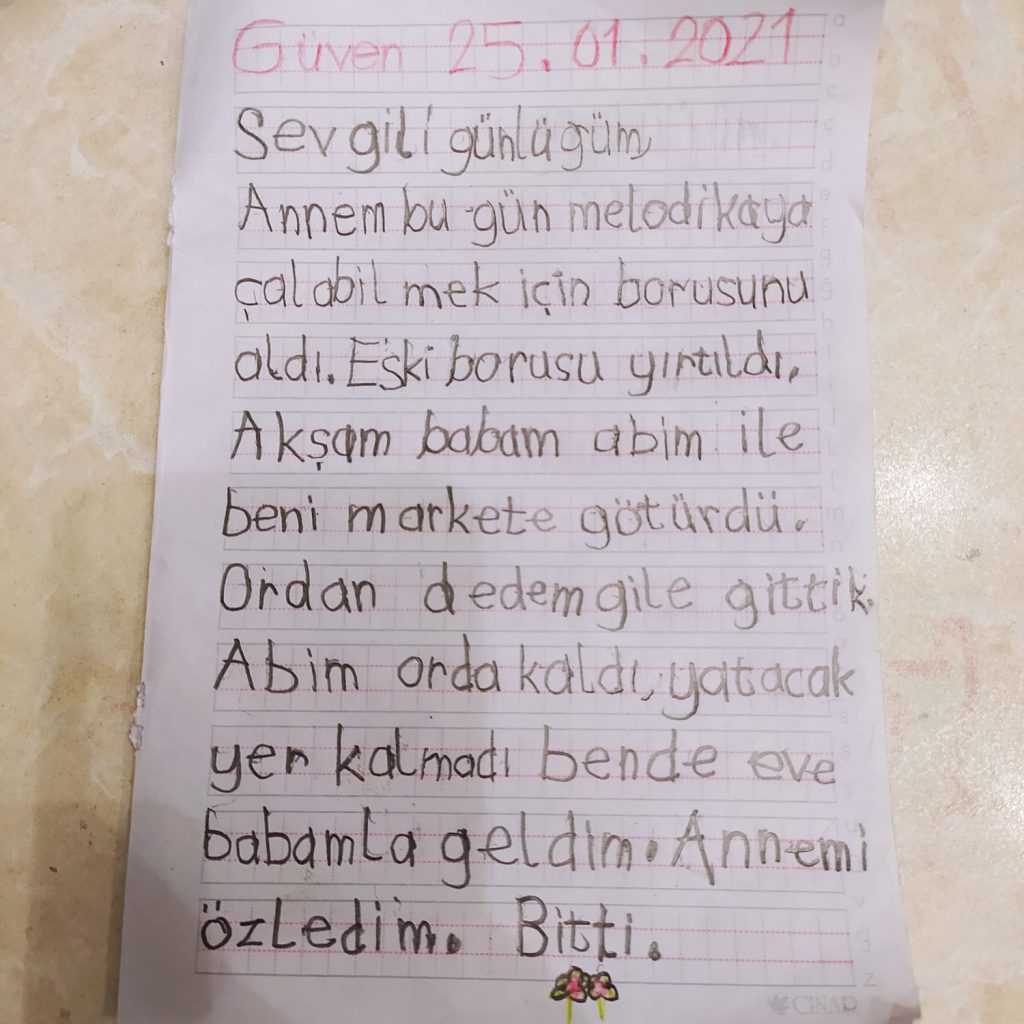 Güven 25.01.2021
Sevgili günlügüm
Annem bu gün melodikaya
çalabil mek için borusunu
aldı. Eski borusu yırtıldı,
Akşam babam abim ile
beni markete götürdü.
Ordan dedemgile gittik.
Abim orda kaldı, yatacak
yer kalmadı bende eve
babamla geldim. Annemi
özledim. Bitti.
ÇINAR